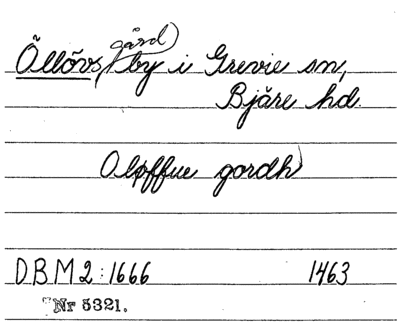 Öllövs(gård) by i Grevie sn,
Bjäre hd
Oløffue gordh
DBM 2:1666 1463
Nr 5321.